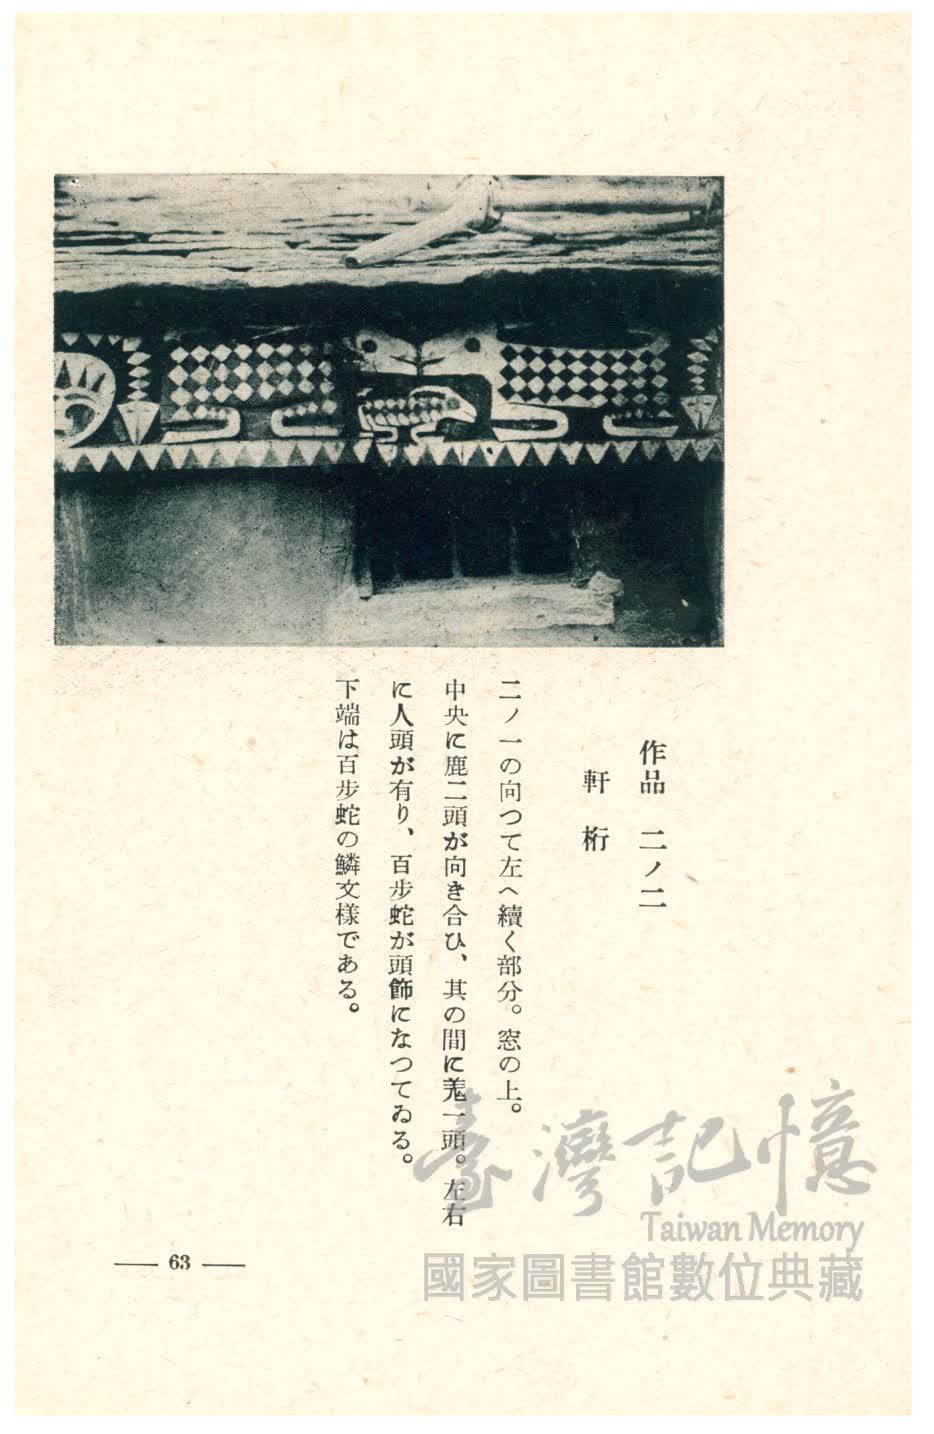 作品　二ノ二
軒　桁
二ノ一の向つて左へ續く部分。窓の上。
中央に鹿二頭が向き合ひ、其の間に羗一頭。左右
に人頭が有り、百步蛇が頭飾になつてゐる。
下端は百步蛇の鱗文樣である。
— 63 —
臺灣記憶
Taiwan Memory
國家圖書館數位典藏